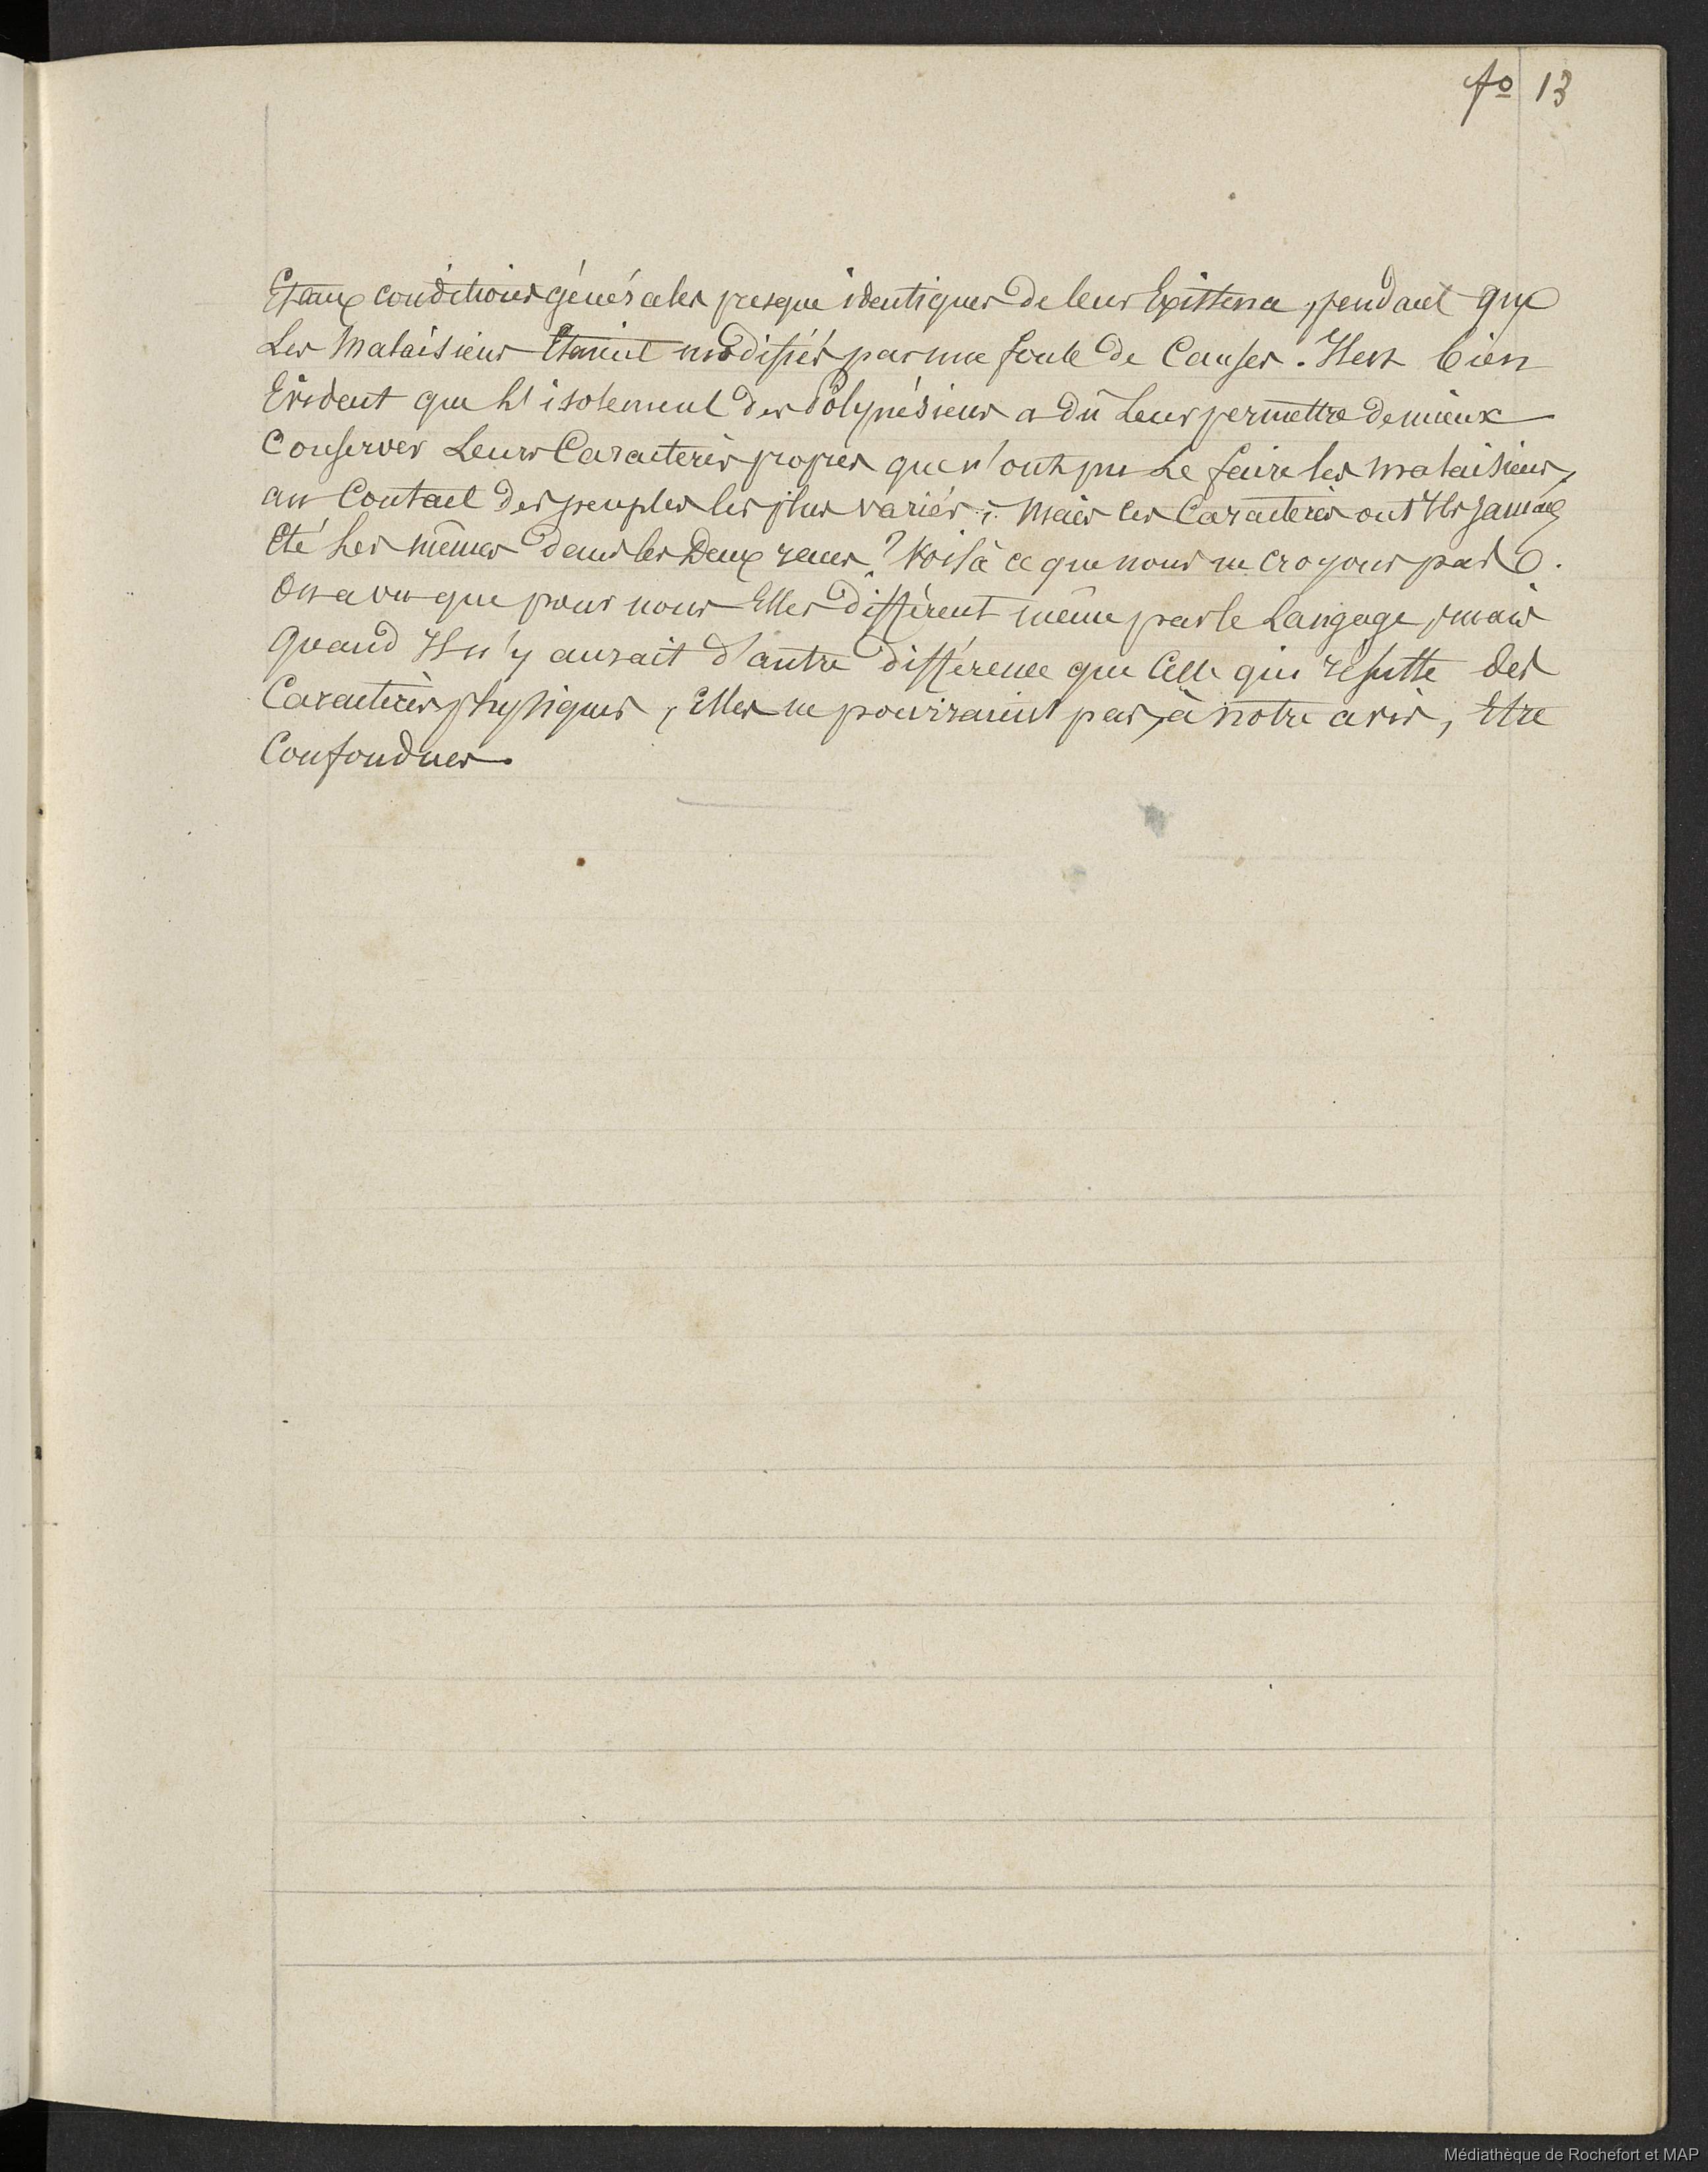 fo 13
Et aux conditions générales presque identiques de leur Existence, pendant que
Les Malaisiens Etaient modifiés par une foule de Causes. Il est bien
Evident que L'isolement des Polynésiens a dû Leur permettre de mieux
Conserver Leurs Caractères propres que n'ont pu Le faire les Malaisiens,
au Contact des peuples les plus variés; Mais ces Caractères ont Ils jamais
Eté Les mêmes dans les Deux races? Voilà ce que nous ne croyons pas.
On a vu que pour nous Elles diffèrent même par le Langage, mais
quand Il n'y aurait d'autre différence que Celle qui résulte des
Caractères physiques, Elles ne pourraient pas, à notre avis, Etre
Confondues.
Médiathèque de Rochefort et MAP